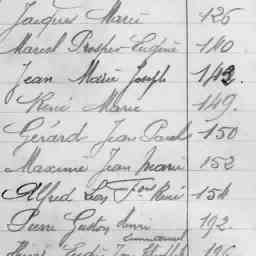 Jacques Marie 126
Marcel Prosper Eugène 140
Jean Marie Joseph 142.
René Marie 149.
Gérard Jean Paul 150
Maxime Jean Marie 152
Alfred Léon Fçois René 154
Pierre Gaston Henri 192.
Emmanuel
Eugène 196